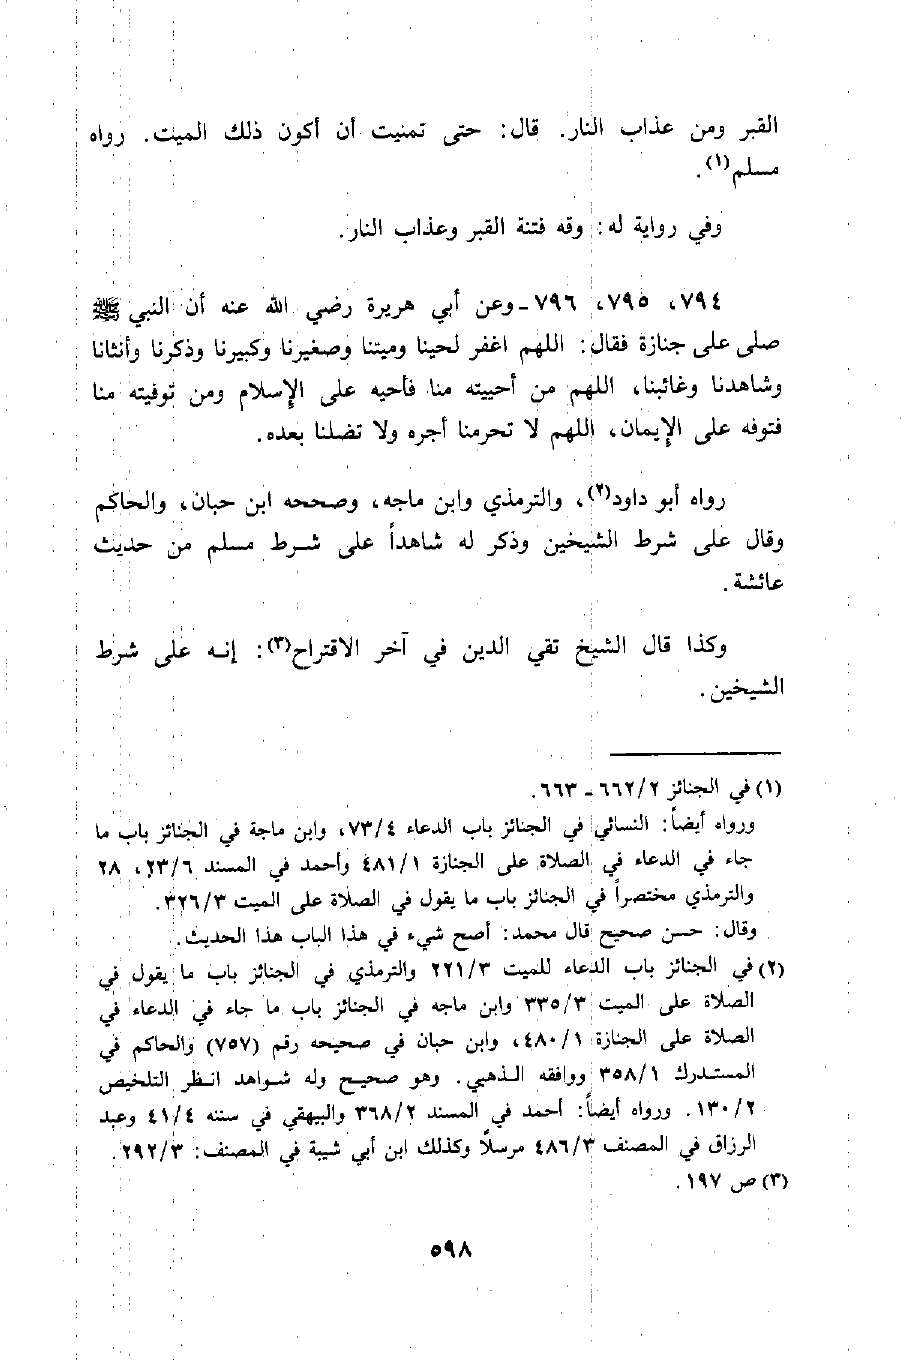 القبر ومن عذاب النار. قال: حتى تمنيت أن أكون ذلك الميت. رواه
مسلم(١).
وفي رواية له: وقه فتنة القبر وعذاب النار.
٧٩٤، ٧٩٥، ٧٩٦ - وعن أبي هريرة رضي الله عنه أن النبي ﷺ
صلى على جنازة فقال: اللهم اغفر لحينا وميتنا وصغيرنا وكبيرنا وذكرنا وأنثانا
وشاهدنا وغائبنا، اللهم من أحييته منا فأحيه على الإسلام ومن توفيته منا
فتوفه على الإيمان، اللهم لا تحرمنا أجره ولا تضلنا بعده.
رواه أبو داود(٢)، والترمذي وابن ماجه، وصححه ابن حبان، والحاكم
وقال على شرط الشيخين وذكر له شاهداً على شرط مسلم من حديث
عائشة.
وكذا قال الشيخ تقي الدين في آخر الاقتراح(٣): إنه على شرط
الشيخين.
(١) في الجنائز ٦٦٢/٢ - ٦٦٣.
ورواه أيضاً: النسائي في الجنائز باب الدعاء ٧٣/٤، وابن ماجة في الجنائز باب ما
جاء في الدعاء في الصلاة على الجنازة ٤٨١/١ وأحمد في المسند ٢٣/٦، ٢٨
والترمذي مختصراً في الجنائز باب ما يقول في الصلاة على الميت ٣٢٦/٣.
وقال: حسن صحيح قال محمد: أصح شيء في هذا الباب هذا الحديث.
(٢) في الجنائز باب الدعاء للميت ٢٢١/٣ والترمذي في الجنائز باب ما يقول في
الصلاة على الميت ٣٣٥/٣ وابن ماجه في الجنائز باب ما جاء في الدعاء في
الصلاة على الجنازة ٤٨٠/١، وابن حبان في صحيحه رقم (٧٥٧) والحاكم في
المستدرك ٣٥٨/١ ووافقه الذهبي. وهو صحيح وله شواهد انظر التلخيص
١٣٠/٢. ورواه أيضاً: أحمد في المسند ٣٦٨/٢ والبيهقي في سننه ٤١/٤ وعبد
الرزاق في المصنف ٤٨٦/٣ مرسلاً وكذلك ابن أبي شيبة في المصنف: ٢٩٢/٣.
(٣) ص ١٩٧.
٥٩٨